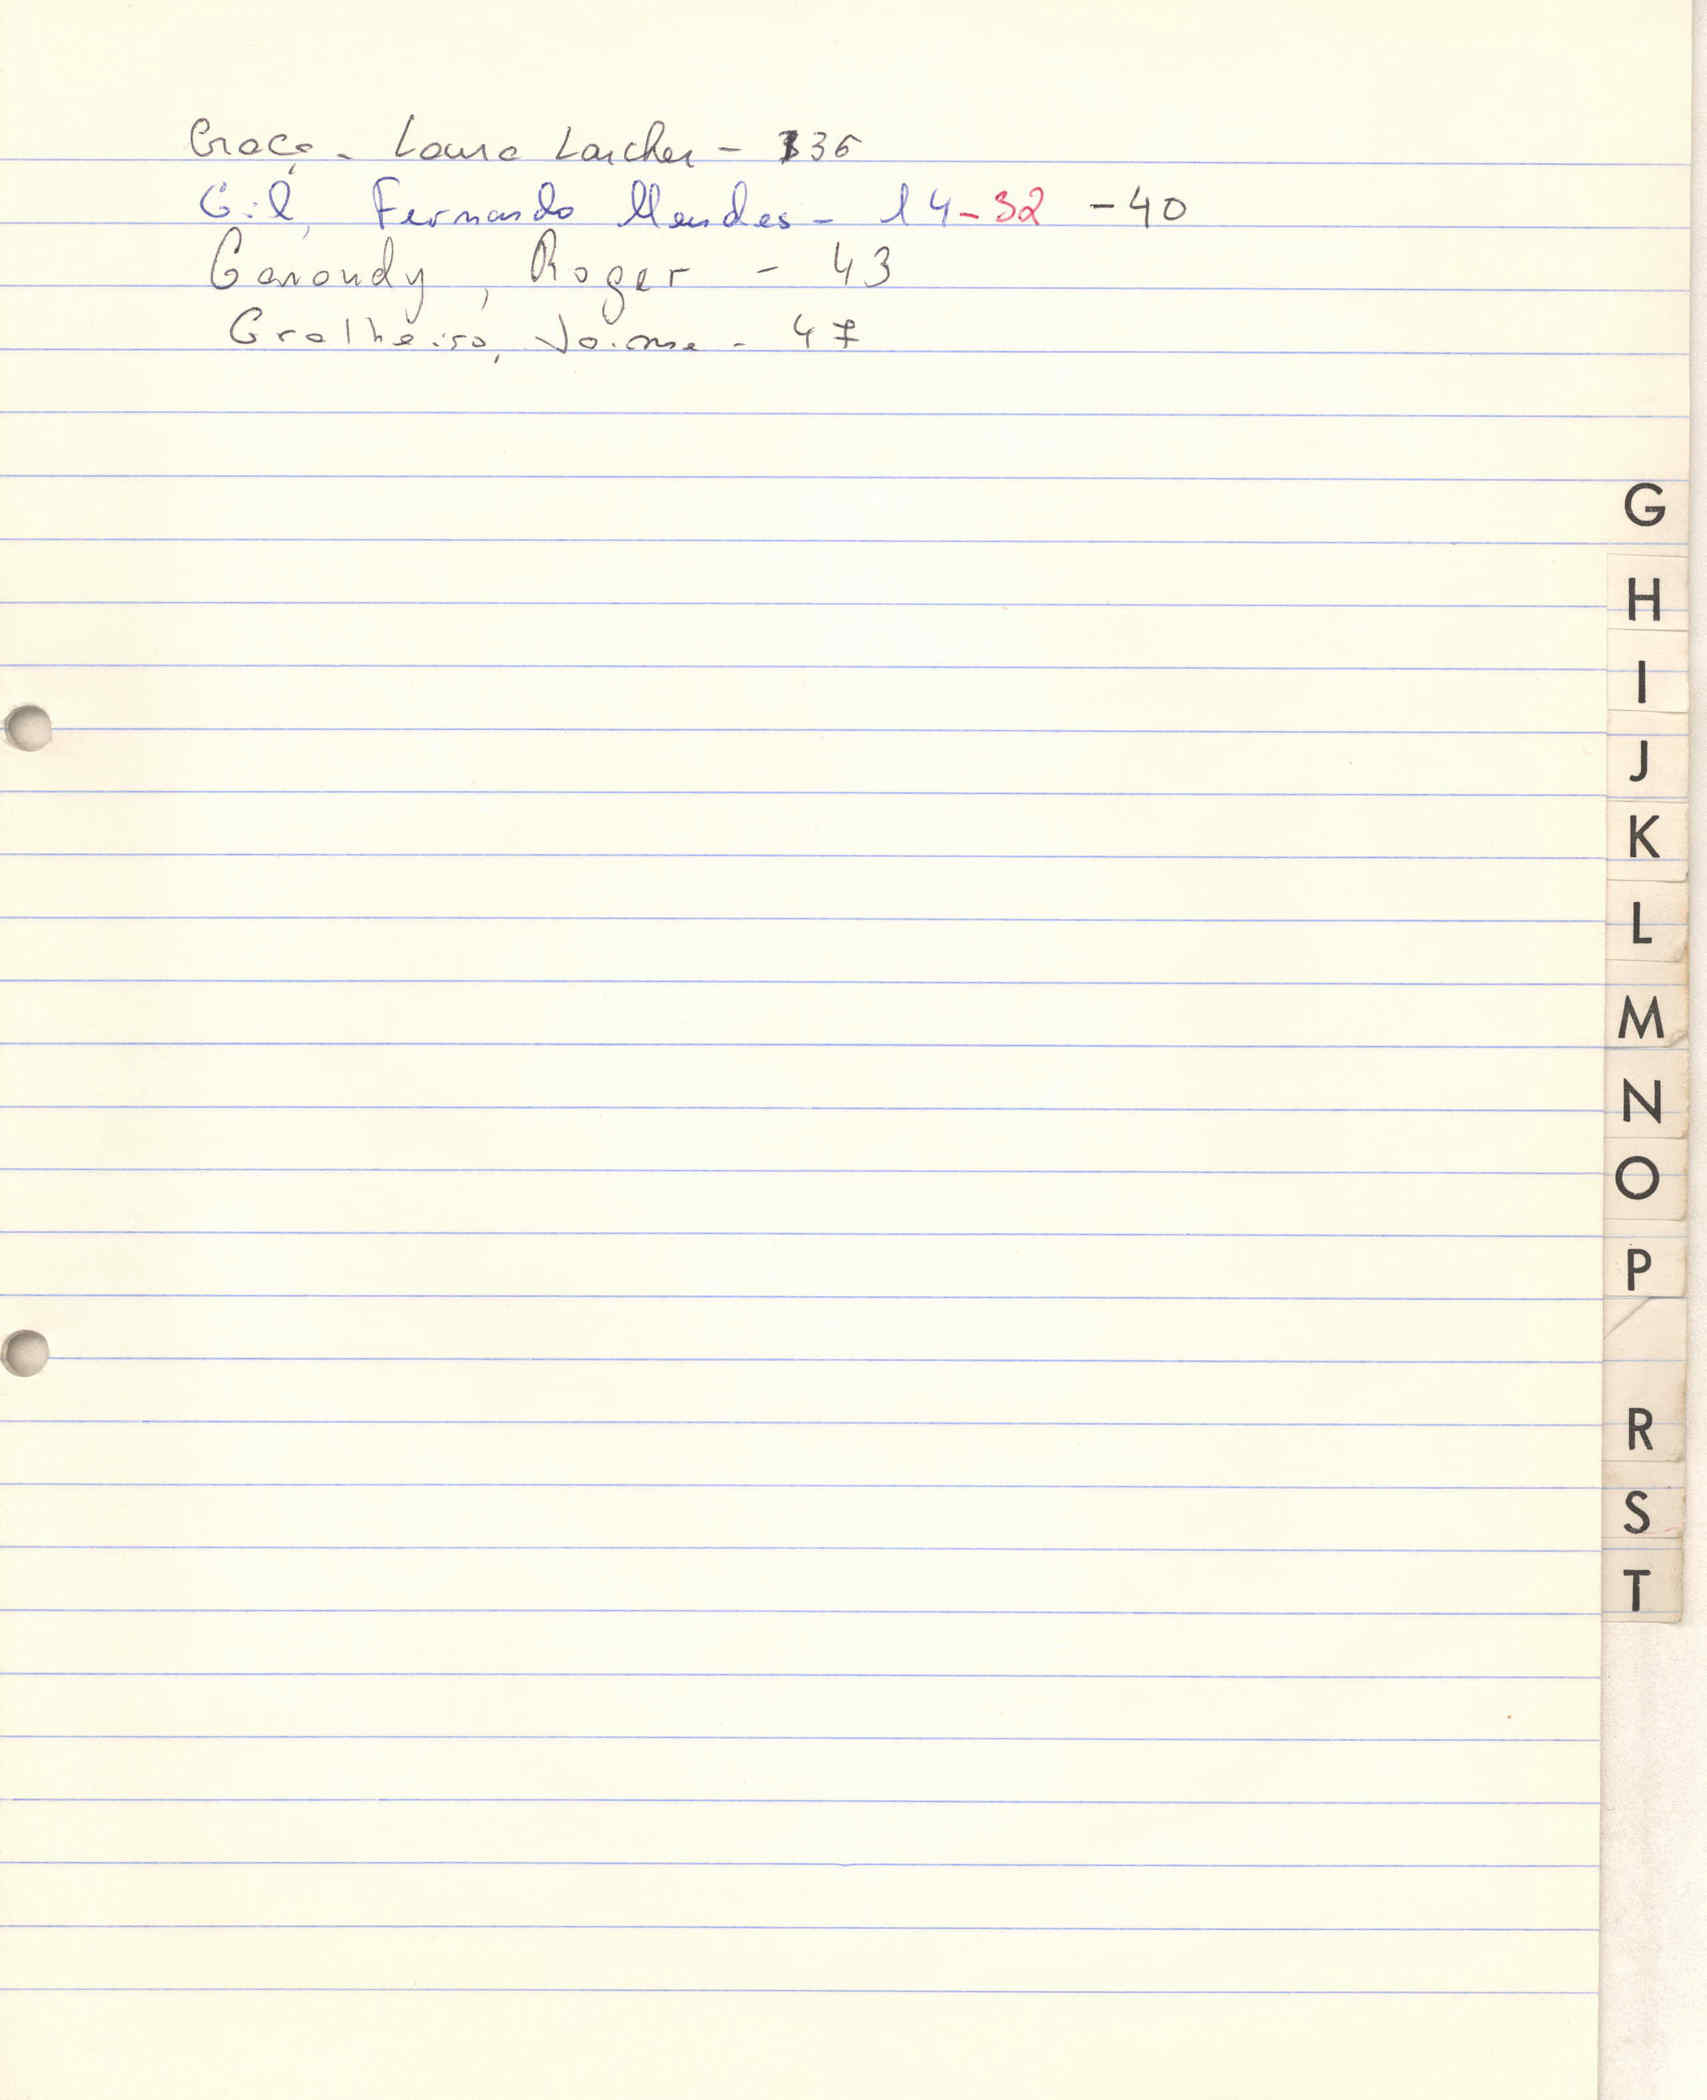 Graça - Laura Larcher - 36
Gil, Fernando Mendes - 14-32 -40
Garoudy, Roger - 43
Gralheiro, Jaime - 47
G
H
I
J
K
L
M
N
O
P
R
S
T